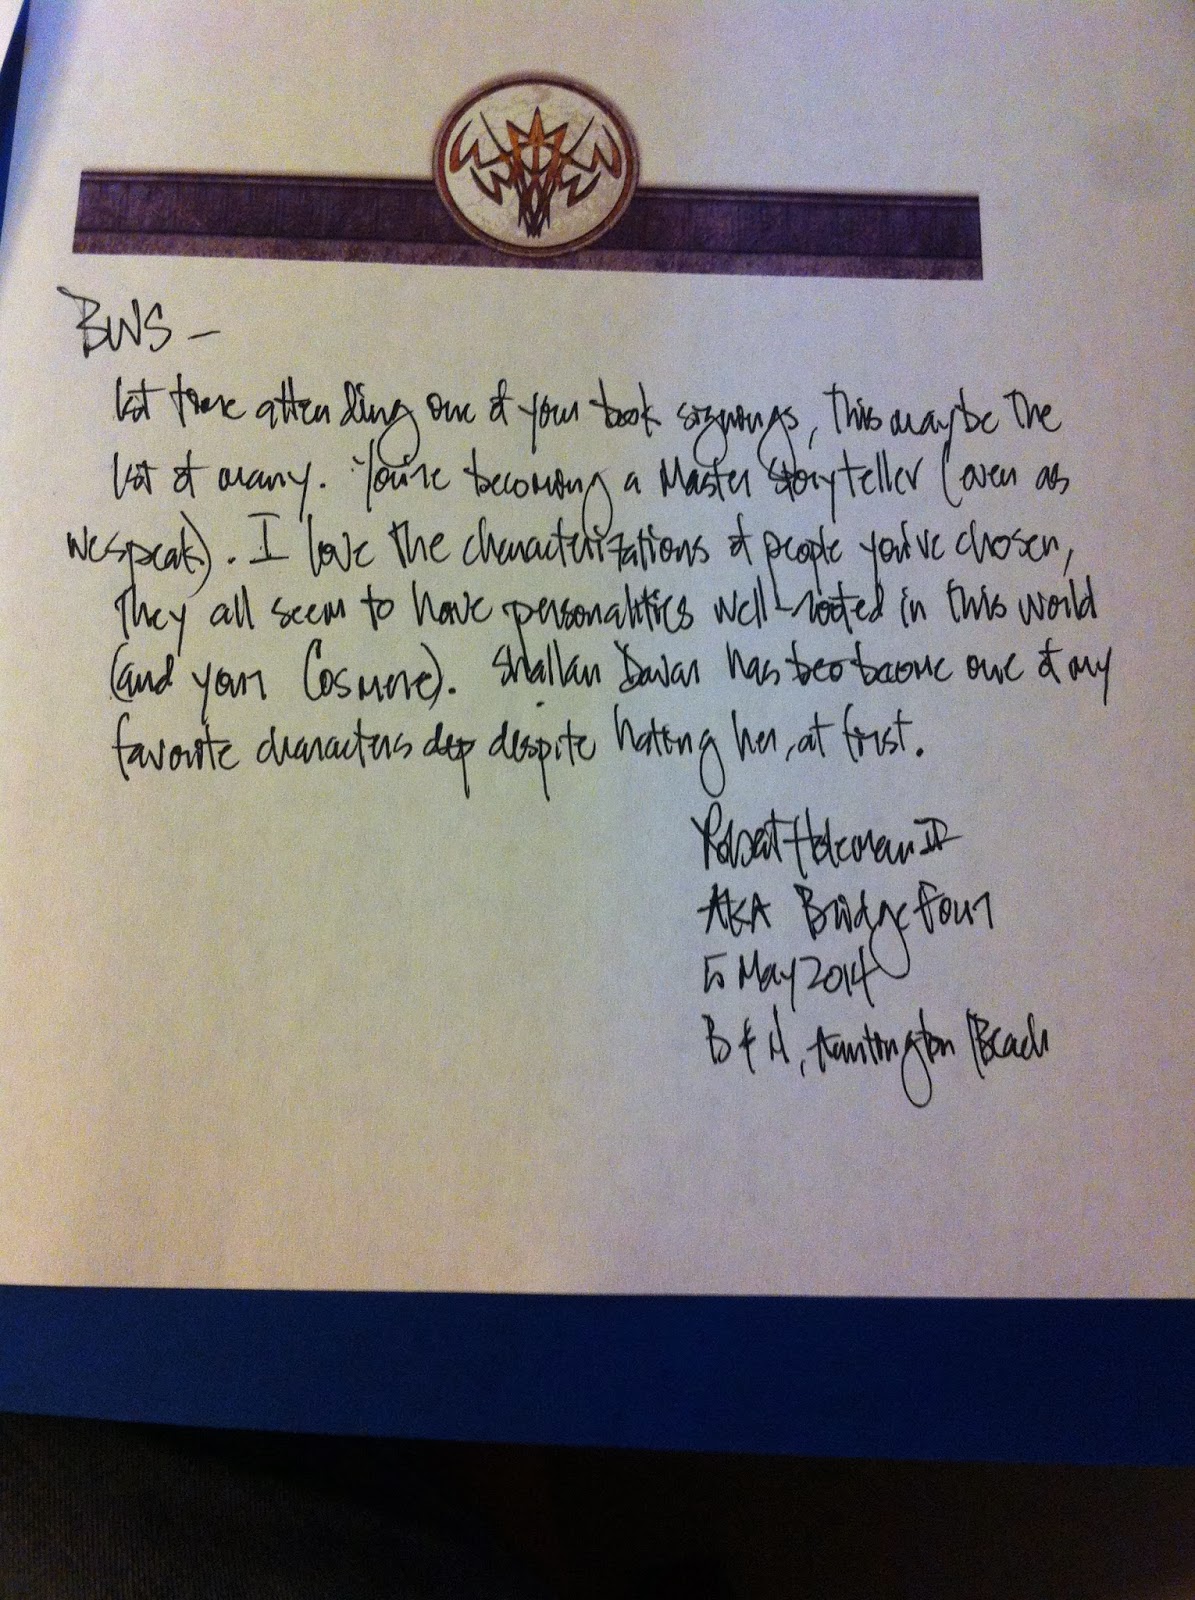 BWS –
1st time attending one of your book signings, this maybe the
1st of many. You're becoming a Master Storyteller (even as
we speak). I love the characterizations of people you've chosen,
they all seem to have personalities well-rooted in this world
(and your Cosmere). Shallan Davar has become one of my
favorite characters despite hating her, at first.
Robert
AKA Bridge Four
5 May 2014
B & N, Huntington Beach